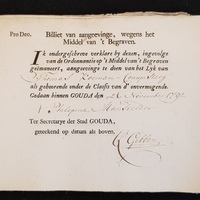 Pro Deo.
Billiet van aangeevinge, wegens het
Middel van 't Begraven.
IK ondergeschreve verklare by dezen, ingevolge
van de Ordonnantie op 't Middel van 't Begraven
geëmaneert, aangeevinge te doen van het Lyk van
Thomas
als gehoorende onder de Classis van d' onvermogende.
Gedaan binnen GOUDA den 26 November 1792
Ter Secretarye der Stad GOUDA,
geteekend op datum als boven.